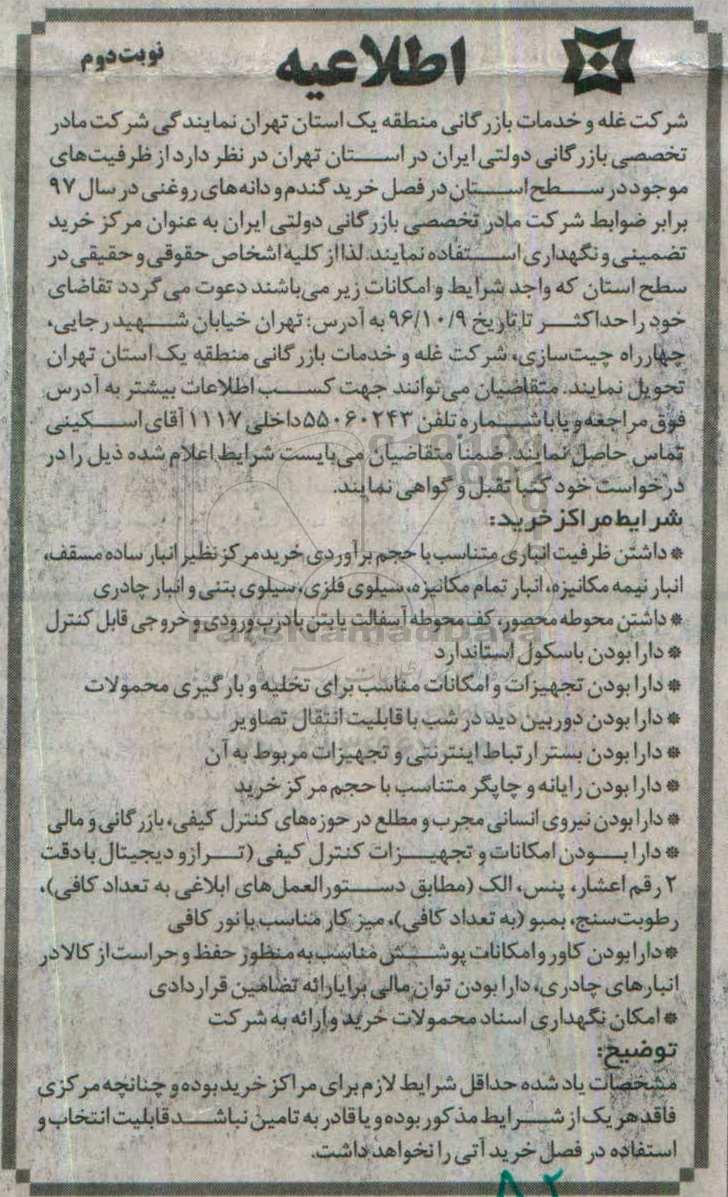 اطلاعیه
نوبت دوم
شرکت غله و خدمات بازرگانی منطقه یک استان تهران نمایندگی شرکت مادر
تخصصی بازرگانی دولتی ایران در استان تهران در نظر دارد از ظرفیت‌های
موجود در سطح استان در فصل خرید گندم و دانه‌های روغنی در سال ۹۷
برابر ضوابط شرکت مادر تخصصی بازرگانی دولتی ایران به عنوان مرکز خرید
تضمینی و نگهداری استفاده نمایند. لذا از کلیه اشخاص حقوقی و حقیقی در
سطح استان که واجد شرایط و امکانات زیر می‌باشند دعوت می‌گردد تقاضای
خود را حداکثر تا تاریخ ۹۶/۱۰/۹ به آدرس: تهران خیابان شهید رجایی،
چهارراه چیت‌سازی، شرکت غله و خدمات بازرگانی منطقه یک استان تهران
تحویل نمایند. متقاضیان می‌توانند جهت کسب اطلاعات بیشتر به آدرس
فوق مراجعه و یا با شماره تلفن ۵۵۰۶۰۲۴۳ داخلی ۱۱۱۷ آقای اسکینی
تماس حاصل نمایند. ضمنا متقاضیان می‌بایست شرایط اعلام شده ذیل را در
درخواست خود کتبا تقبل و گواهی نمایند.
شرایط مراکز خرید:
* داشتن ظرفیت انباری متناسب با حجم برآوردی خرید مرکز نظیر انبار ساده مسقف،
انبار نیمه مکانیزه، انبار تمام مکانیزه، سیلوی فلزی، سیلوی بتنی و انبار چادری
* داشتن محوطه محصور، کف محوطه آسفالت یا بتن با درب ورودی و خروجی قابل کنترل
ParsNamadData
* دارا بودن باسکول استاندارد
* دارا بودن تجهیزات و امکانات مناسب برای تخلیه و بارگیری محمولات
* دارا بودن دوربین دید در شب با قابلیت انتقال تصاویر
* دارا بودن بستر ارتباط اینترنتی و تجهیزات مربوط به آن
* دارا بودن رایانه و چاپگر متناسب با حجم مرکز خرید
* دارا بودن نیروی انسانی مجرب و مطلع در حوزه‌های کنترل کیفی، بازرگانی و مالی
* دارا بودن امکانات و تجهیزات کنترل کیفی (ترازو دیجیتال با دقت
۲ رقم اعشار، پنس، الک (مطابق دستورالعمل‌های ابلاغی به تعداد کافی)،
رطوبت‌سنج، بمبو (به تعداد کافی)، میز کار مناسب با نور کافی
* دارا بودن کاور و امکانات پوشش مناسب به منظور حفظ و حراست از کالا در
انبارهای چادری، دارا بودن توان مالی برای ارائه تضامین قراردادی
* امکان نگهداری اسناد محمولات خرید و ارائه به شرکت
توضیح:
مشخصات یاد شده حداقل شرایط لازم برای مراکز خرید بوده و چنانچه مرکزی
فاقد هر یک از شرایط مذکور بوده و یا قادر به تامین نباشد قابلیت انتخاب و
استفاده در فصل خرید آتی را نخواهد داشت.